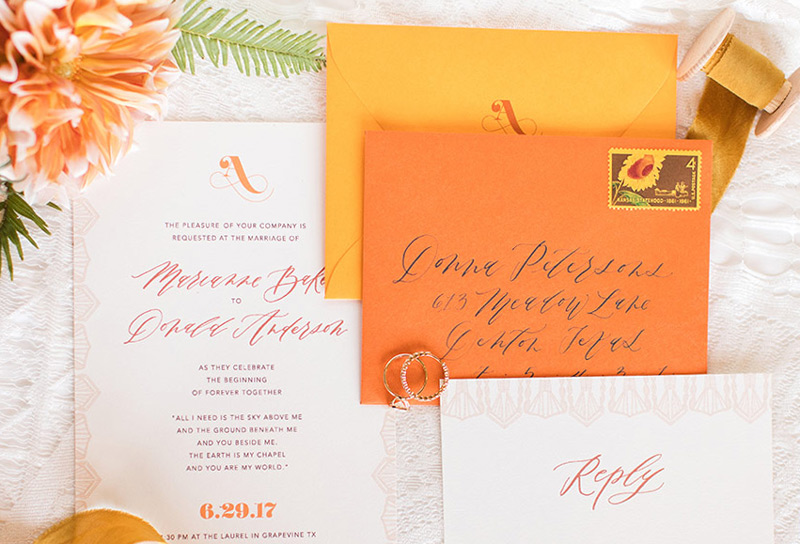 A
THE PLEASURE OF YOUR COMPANY IS
REQUESTED AT THE MARRIAGE OF
Marianne Bake
TO
Donald Anderson
AS THEY CELEBRATE
THE BEGINNING
OF FOREVER TOGETHER
"ALL I NEED IS THE SKY ABOVE ME
AND THE GROUND BENEATH ME
AND YOU BESIDE ME.
THE EARTH IS MY CHAPEL
AND YOU ARE MY WORLD."
6.29.17
:30 PM AT THE LAUREL IN GRAPEVINE TX
A
4
U.S. POSTAGE
KANSAS STATEHOOD • 1861-1961
Donna Petersons
613 Meadow Lane
Denton Texas
Reply